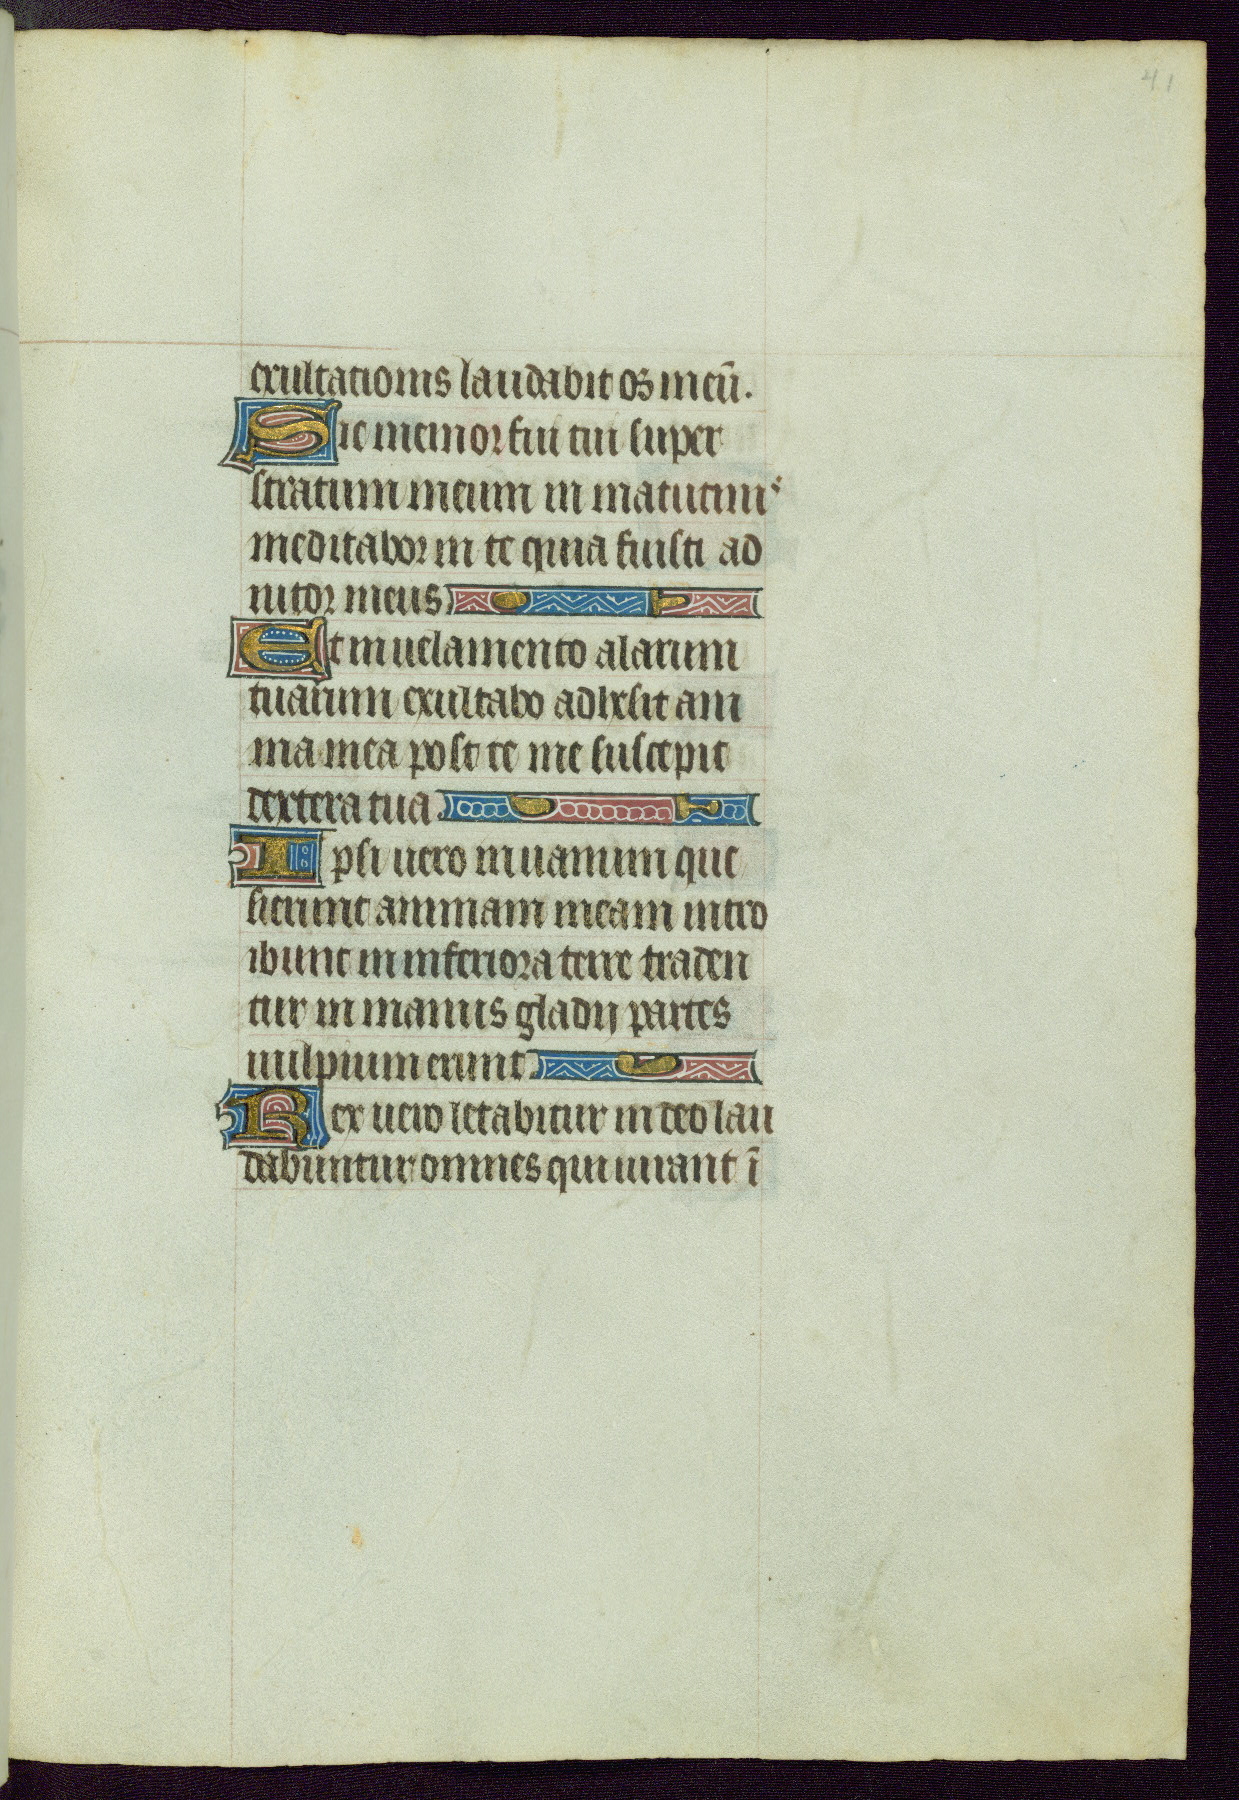 41
exultationis laudabit os meū.
Sic memor fui tui super
stratum meum in matutinis
meditabor in te quia fuisti ad
iutor meus
Et in uelamento alarum
tuarum exultabo adhesit ani
ma mea post te me suscepit
dextera tua.
Ipsi uero in uanum que
sierunt animam meam intro
ibunt in inferiora terre traden
tur in manus gladij partes
uulpium erunt.
Rex uero letabitur in deo lau
dabuntur omnes qui iurant ī